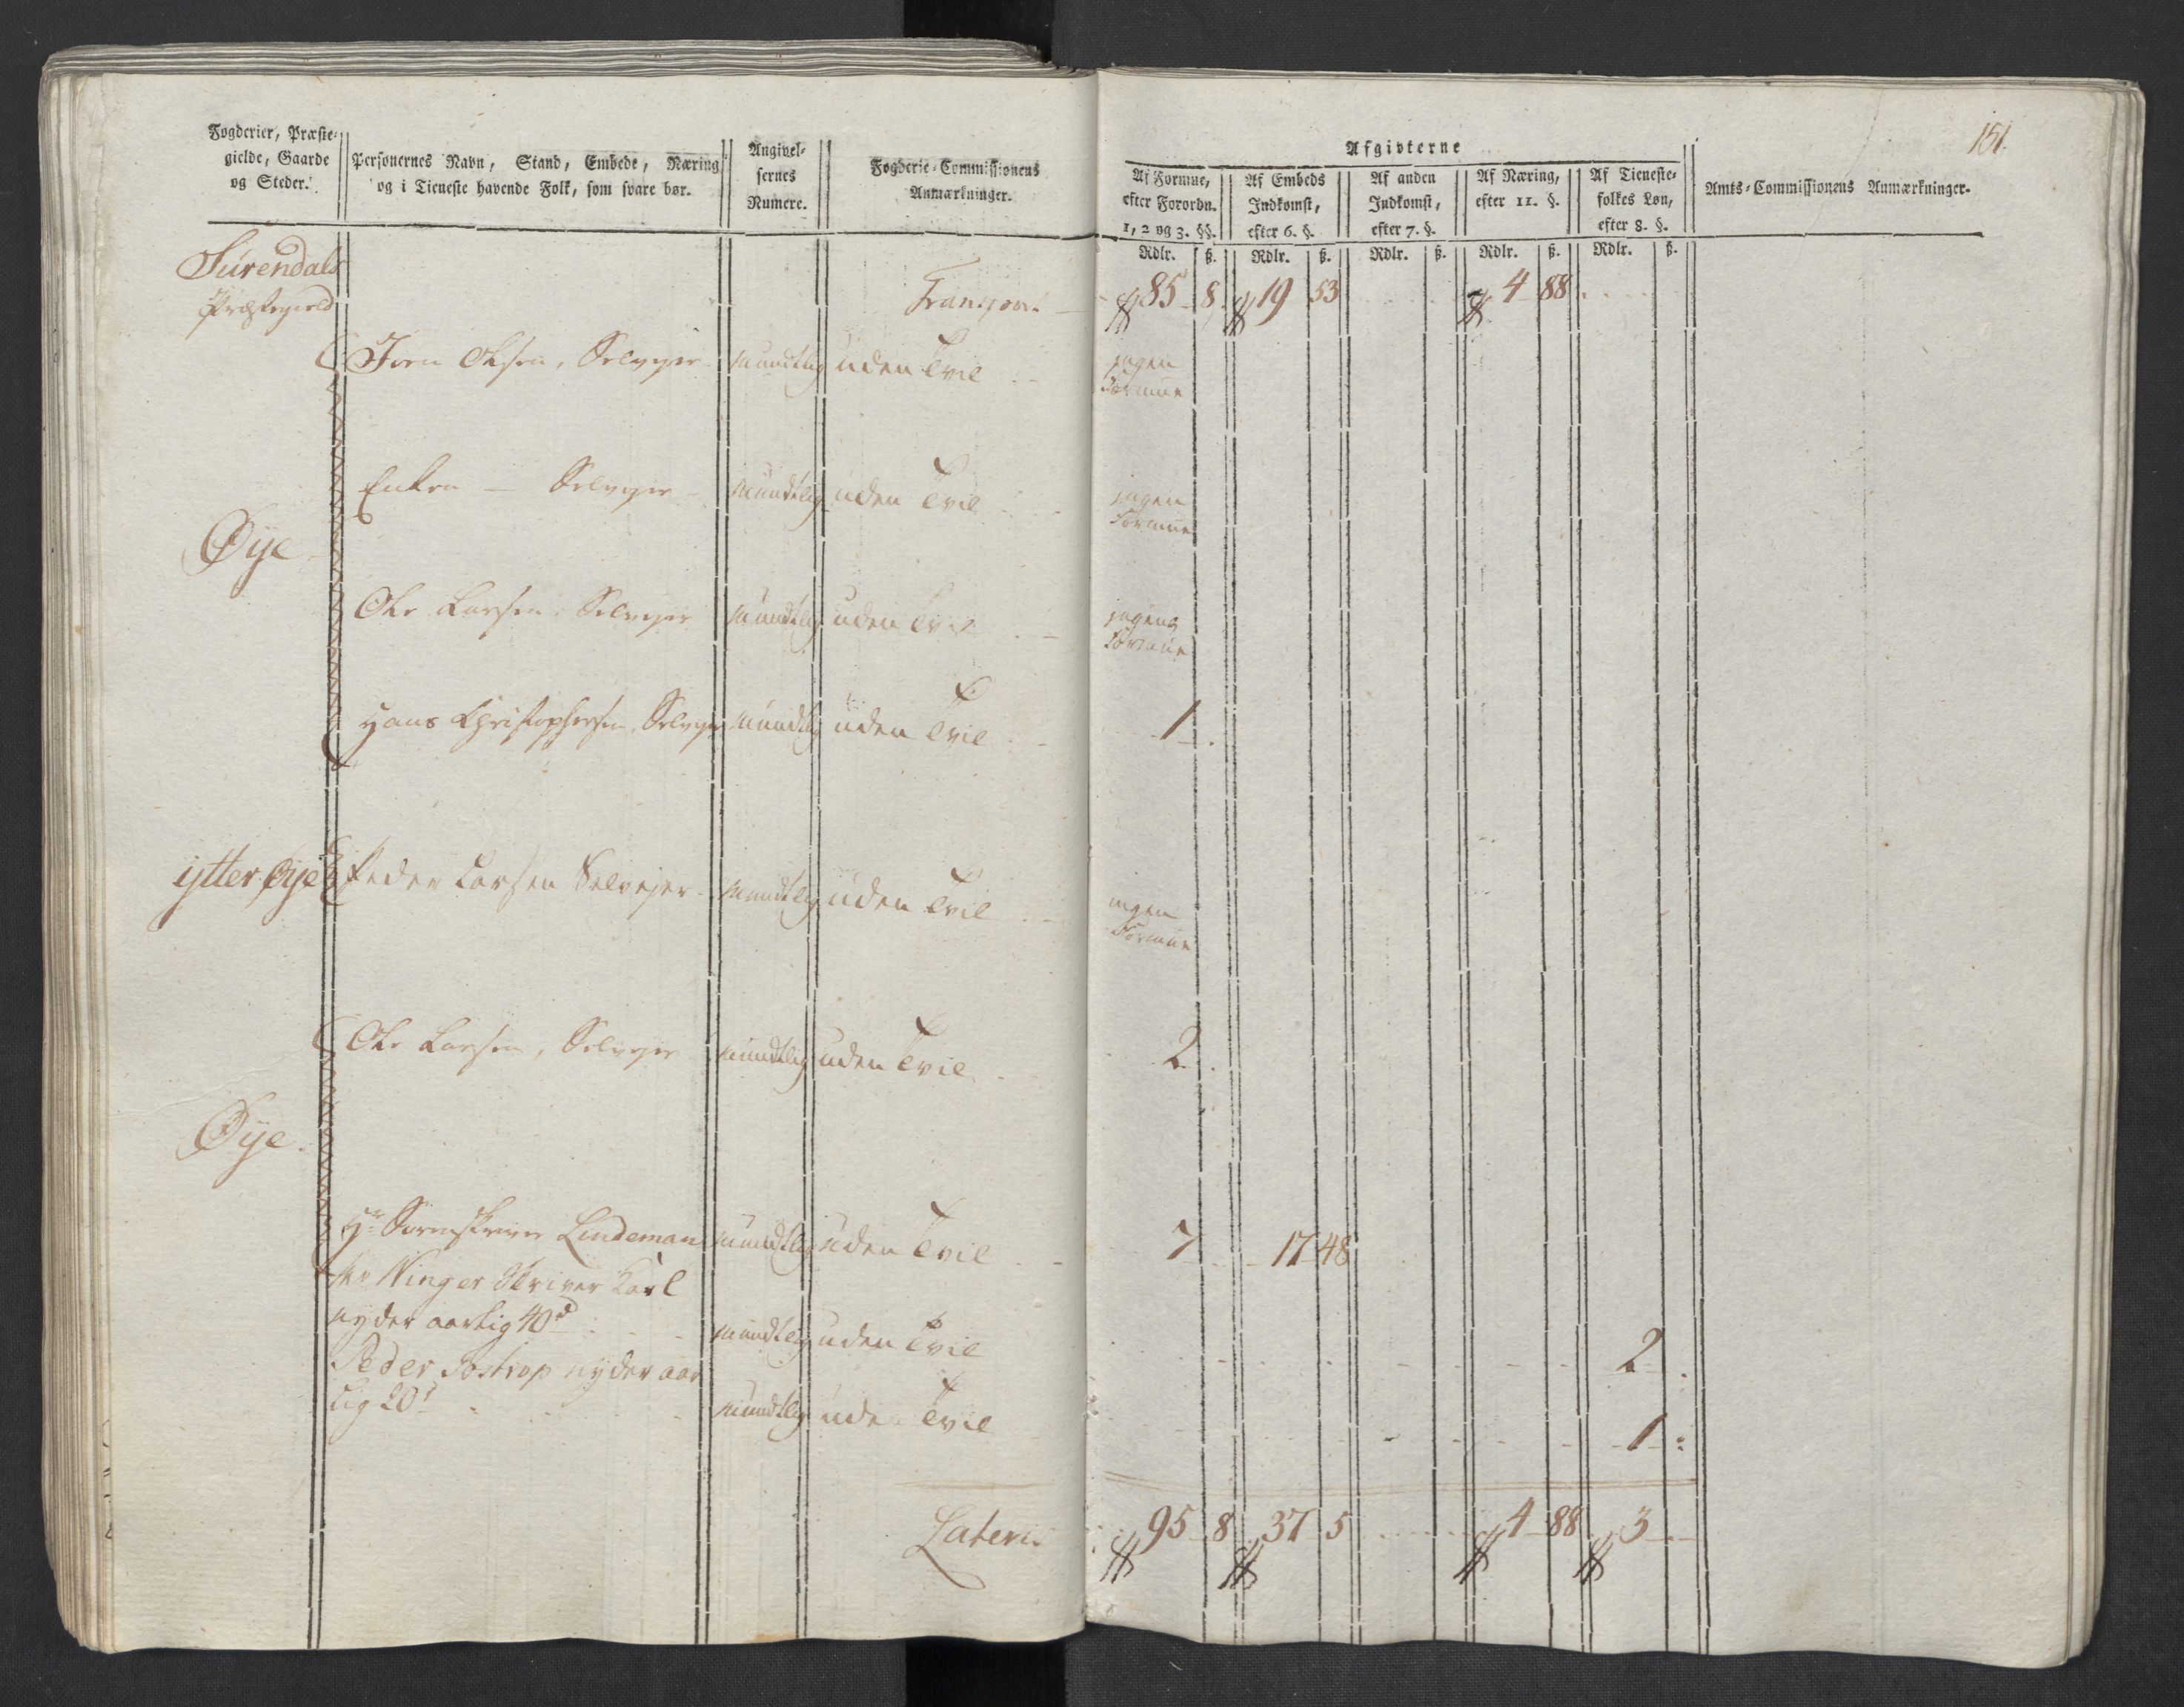 151.
Fogderier, Præste-
gielde, Gaarde
og Steder.
Personernes Navn, Stand, Embede, Næring
og i Tieneste havende Folk, som svare bør.
Angivel-
sernes
Numere.
Fogderie-Commissionens
Anmærkninger.
Afgivterne
Af Formue,
efter Forordn.
1, 2 og 3. §§.
Af Embeds
Indkomst,
efter 6. §.
Af anden
Indkomst,
efter 7. §.
Af Næring,
efter 11. §.
Af Tieneste-
folkes Løn,
efter 8. §.
Amts-Commissionens Anmærkninger.
Rdlr. ß. Rdlr. ß. Rdlr. ß. Rdlr. ß. Rdlr. ß.
Surendals
Præstegield
Transport 85 8 19 53 4 88
Iven Olsen, Selvejer mundtlig uden Tvil ingen
Formue
Enken – Selvejer mundtlig uden Tvil ingen
Formue
Øye
Ole Larsen Selvejer mundtlig uden Tvil ingen
Formue
Hans Christophersen, Selvejer mundtlig uden Tvil 1
ytter Øye Peder Larsen Selvejer mundtlig uden Tvil ingen
Formue
Ole Larsen, Selvejer mundtlig uden Tvil 2
Øye
Hr Sorenskriver Lindeman mundtlig uden Tvil 7 17 48
Winger Skriver Karl
nyder aarlig 40d mundtlig uden Tvil 2
Peder nyder aar
lig 20d mundtlig uden Tvil 1
Lateris 95 8 37 5 4 88 3